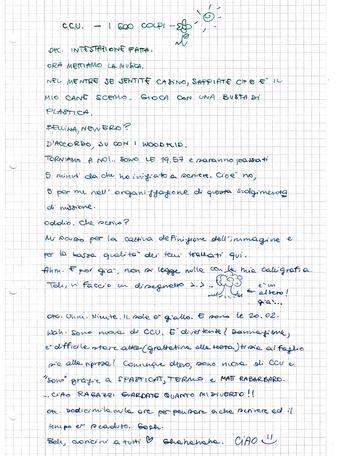 C.C.U. - I 600 COLPI -
OK. INTESTAZIONE FATA.
ORA METTIAMO LA MUSICA.
NEL MENTRE SE SENTITE CASINO, SAPPIATE CHE E' IL
MIO CANE SCEMO. GIOCA CON UNA BUSTA DI
PLASTICA.
BELLINA, NEVVERO?
D'ACCORDO, SU CON I WOODKID.
TORNIAMO A NOI.. SONO LE 19.57 e saranno passati
5 minuti da che ho iniziato a scrivere. Cioè no,
5 per me nell' organizzazione di questo svolgimento
di missione.
Oddio. Che scrivo?
Mi scuso per la cattiva definizione dell'immagine e
per la bassa qualità dei temi trattati qui.
Ahm. E poi già, non si legge nulla con la mia calligrafia
Toh, vi faccio un disegnetto
è un
albero!
già...
Uhm. Niente. Il sole è giallo. E sono le 20.02.
Wah. Sono nuova di CCU. E' divertente!
è difficile stare alla
Comunque dicevo, sono nuova di CCU e
"sono" grazie a SPASTICAT, TERMO e MAT RABARBARO.
CIAO RAGAZZI GUARDATE QUANTO MI DIVERTO!!
ok. dodicimila ore per pensare a che scrivere ed il
tempo è scaduto. Gosh.
Beh, a tutti ♡ CIAO